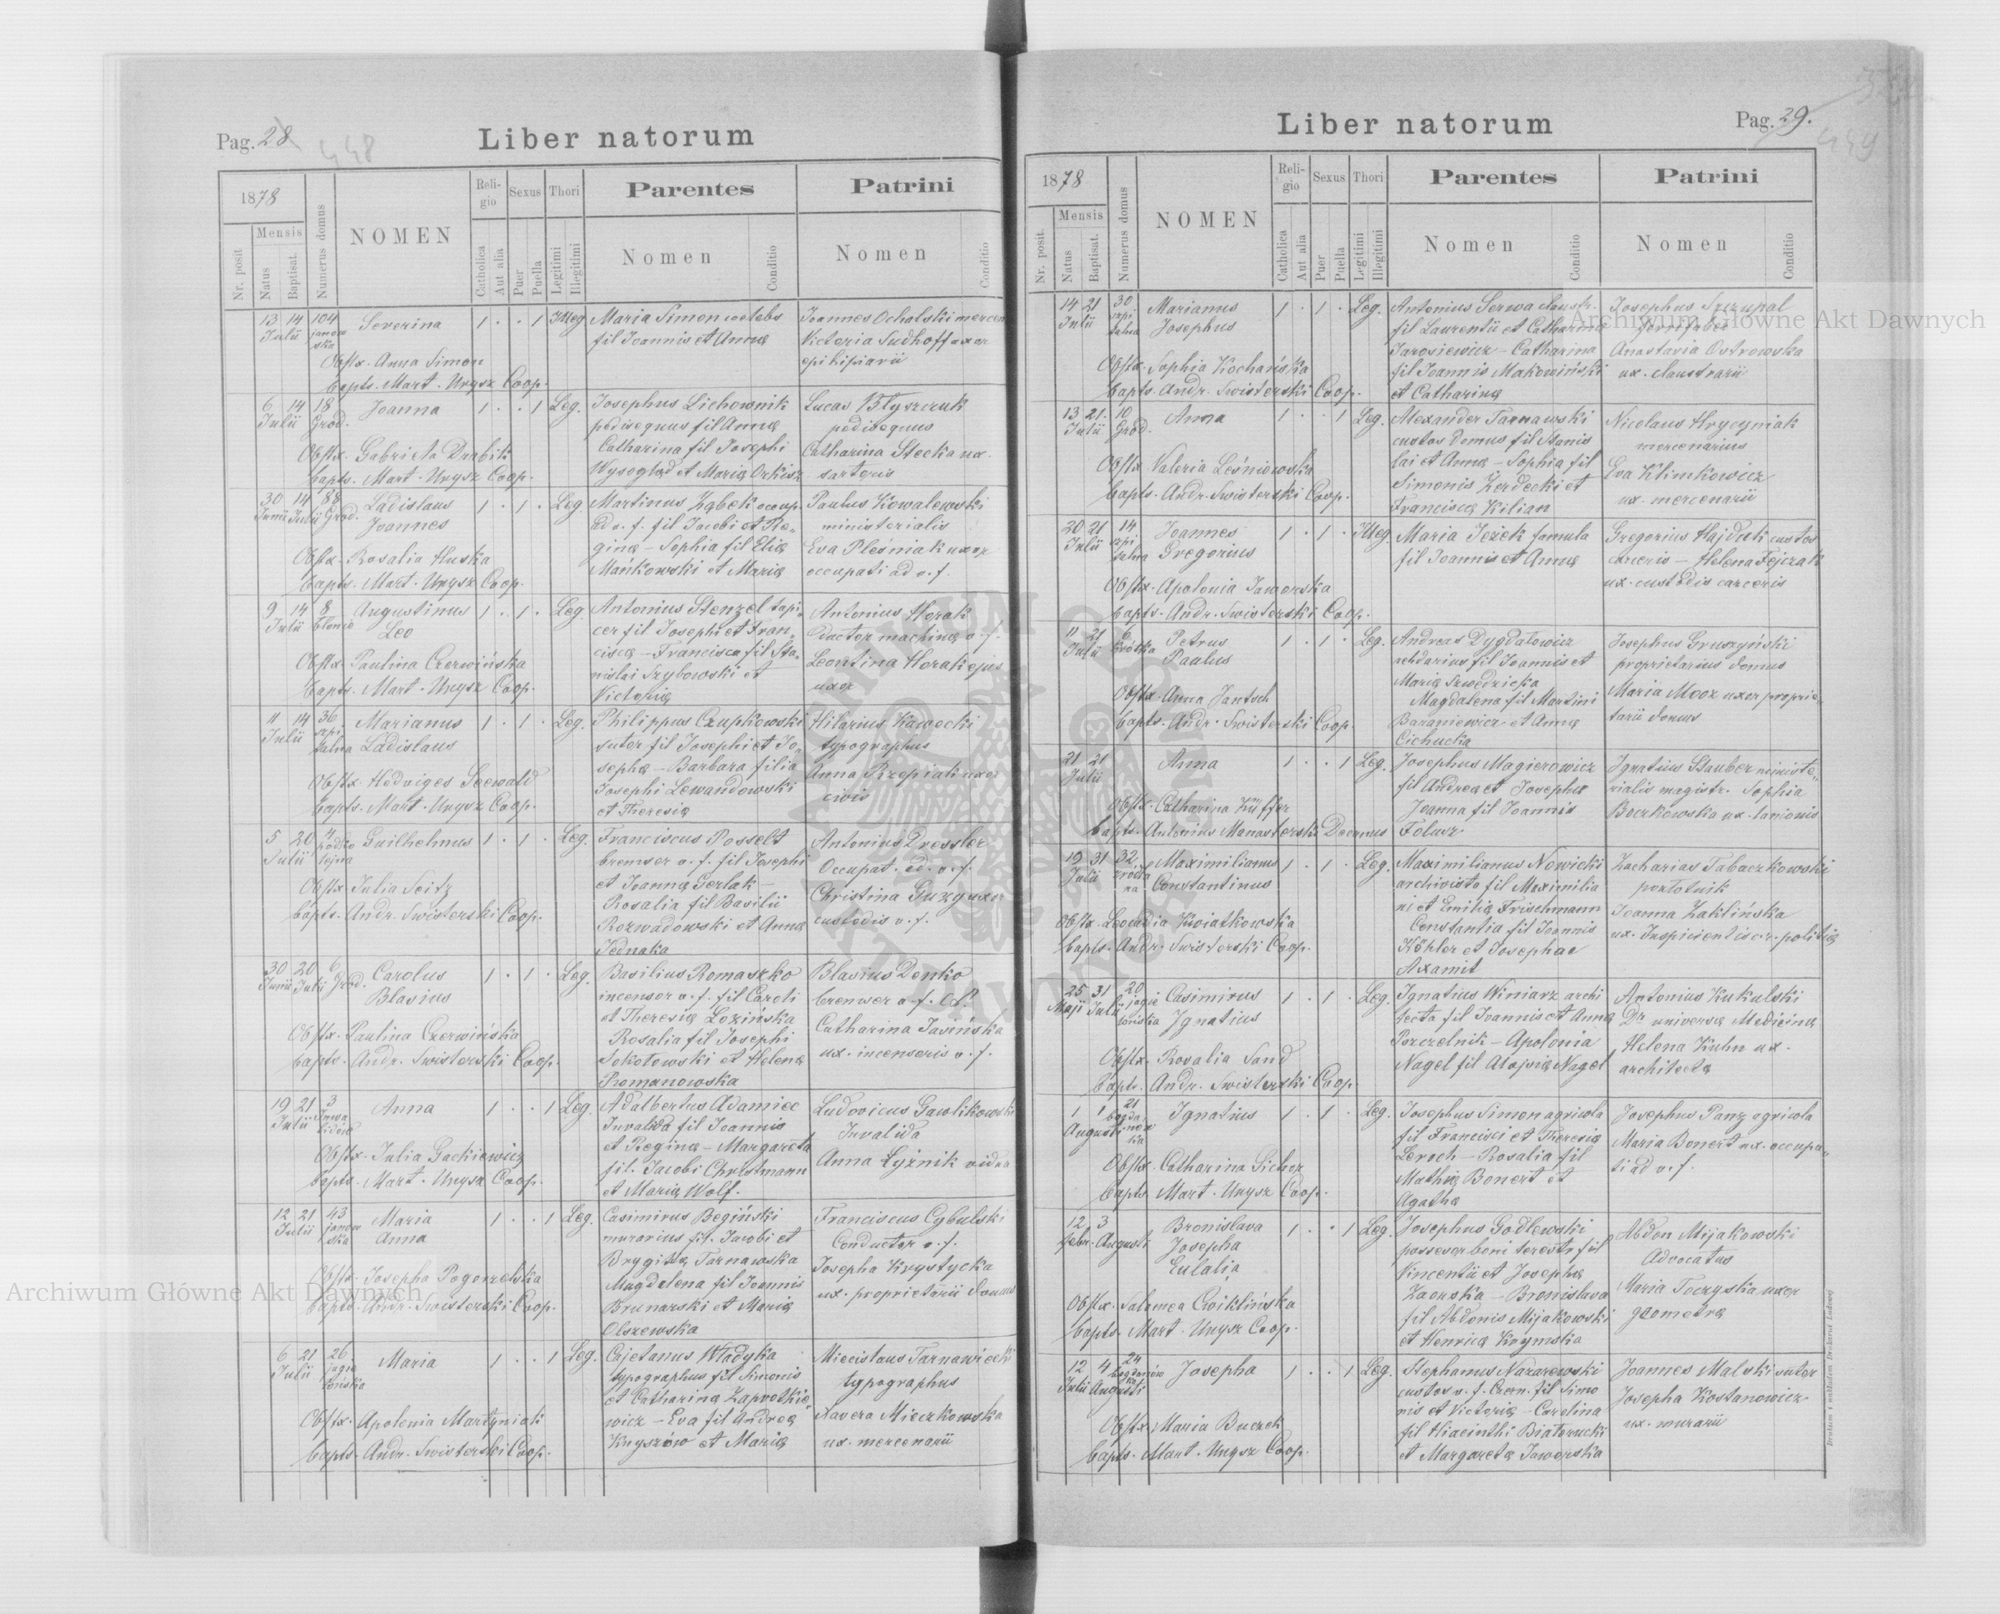 Pag. 28
448
Liber natorum
1878
Mensis
Nr. posit
Natus
Baptisat.
Numerus domus
NOMEN
Religio
Catholica
Aut alia
Sexus
Puer
Puella
Thori
Legitimi
Illegitimi
Parentes
Nomen
Conditio
Patrini
Nomen
Conditio
13 Julii 14 104 janowska
Severina
1 · · 1 Illeg
Obstx. Anna Simon
bapts. Mart. Unysz Coop.
Maria Simon coelebs
fil Joannis et Annæ
Joannes Ochalski
Victoria Sudhoff uxor
6 14 Julii 18 Grod.
Joanna
1 · · 1 Leg.
Obstx. Gabriela Drabik
bapts. Mart. Unysz Coop.
Josephus Lichownik
pedisequus fil Annæ
Catharina fil Josephi
et Mariæ Orkisz
Lucas Błyszczuk
pedisequus
Catharina Stecka ux.
sartoris
30 Junii 14 Julii 88 Grod.
Ladislaus
Joannes
1 · 1 · Leg
Obstx. Rosalia Huska
bapts. Mart. Unysz Coop.
Martinus Ząbek occup.
ad v. f. fil Jacobi et Re-
ginæ – Sophia fil Eliæ
Mańkowski et Mariæ
Paulus Kowalewski
ministerialis
Eva Pleśniak uxor
occupati ad v. f.
9 14 Julii 8
Augustinus
Leo
1 · 1 · Leg
Obstx. Paulina Czerwińska
bapts. Mart. Unysz Coop.
Antonius Stenzel tapi-
cer fil Josephi et Fran-
ciscæ – Francisca fil Sta-
nislai Szybowski et
Victoriæ
Antonius Horak
ductor machinæ v. f.
Leontina Horak ejus
uxor
11 14 Julii 36
Marianus
Ladislaus
1 · 1 · Leg.
Obstx. Hedviges Seewald
bapts. Mart. Unysz Coop.
Philippus Czupkowski
sutor fil Josephi et Jo-
sephæ – Barbara filia
Josephi Lewandowski
et Theresiæ
Hilarius Kawecki
typographus
Anna Rzepiak uxor
civis
5 20 Julii
Guilhelmus
1 · 1 · Leg.
Obstx. Julia Seitz
bapts. Andr. Swisterski Coop.
Franciscus Posselt
bremser v. f. fil Josephi
et Joannæ Gerlak –
Rosalia fil Basilii
Rozwadowski et Annæ
Jednaka
Antonius Dressler
Occupat. ad. v. f.
Christina Guzy uxor
custodis v. f.
30 Junii 20 Julii 6 Grod.
Carolus
Blasius
1 · 1 · Leg.
Obstx. Paulina Czerwińska
bapts. Andr. Swisterski Coop.
Basilius Romaszko
incensor v. f. fil Caroli
et Theresiæ Łozińska
Rosalia fil Josephi
Sokołowski et Helenæ
Romanowska
Blasius Denko
bremser v. f.
Catharina Jasińska
ux. incensoris v. f.
19 21 Julii 3
Anna
1 · · 1 Leg.
Obstx. Julia Gackiewicz
bapts. Mart. Unysz Coop.
Adalbertus Adamiec
Invalida fil Joannis
et Reginæ – Margareta
fil. Jacobi Christmann
et Mariæ Wolf.
Ludovicus Gawlikowski
Invalida
Anna Łyżnik vidua
12 21 Julii 43 janowska
Maria
Anna
1 · · 1 Leg.
Obstx. Josepha Pogorzelska
bapts. Andr. Swisterski Coop.
Casimirus Begiński
murarius fil. Jacobi et
Brygittæ Tarnawska
Magdalena fil Joannis
Brunarski et Mariæ
Olszewska
Franciscus Cybulski
Conductor v. f.
Josepha Krystycka
ux. proprietarii domus
6 21 Julii 26 jagiellońska
Maria
1 · · 1 Leg.
Obstx. Apolonia Martyniak
bapts. Andr. Swisterski Coop.
Cajetanus Władyka
typographus fil Simonis
et Catharinæ
Eva fil Andreæ
Knyszów et Mariæ
Miecislaus Tarnawiecki
typographus
Xavera Mieczkowska
ux. mercenarii
Pag. 29.
449
Liber natorum
1878
Mensis
Nr. posit.
Natus
Baptisat.
Numerus domus
NOMEN
Religio
Catholica
Aut alia
Sexus
Puer
Puella
Thori
Legitimi
Illegitimi
Parentes
Nomen
Conditio
Patrini
Nomen
Conditio
14 21 Julii 30
Marianus
Josephus
1 · 1 · Leg.
Obstx. Sophia Kochańska
bapts. Andr. Swisterski Coop.
Antonius Serwa claustr.
fil Laurentii et Catharinæ
Jarosiewicz – Catharina
fil Joannis Makowiński
et Catharinæ
Josephus Szzupal
Anastasia Ostrowska
ux. claustrarii
13 21. Julii 10 Grod.
Anna
1 · · 1 Leg.
Obstx Valeria Leśniowska
bapts. Andr. Swisterski Coop.
Alexander Tarnawski
custos domus fil Stanis
lai et Annæ – Sophia fil
Simonis Zerdecki et
Franciscæ Kilian
Nicolaus Hrycyniak
mercenarius
Eva Klimkowicz
ux. mercenarii
20 21 Julii 14
Joannes
Gregorius
1 · 1 · Illeg.
Obstx. Apolonia Jaworska
bapts. Andr. Swisterski Coop.
Maria Jeżek famula
fil Joannis et Annæ
Gregorius Hajduk custos
carceris – Helena Fejczak
ux. custodis carceris
11 21 Julii
Petrus
Paulus
1 · 1 · Leg.
Obstx. Anna Jantsch
bapts. Andr. Swisterski Coop.
Andreas Dygdałowicz
rhedarius fil Joannis et
Mariæ Szwedzicka
Magdalena fil Martini
Baraniewicz et Annæ
Cichucka
Josephus Gruszyński
proprietarius domus
Maria Mooz uxor proprie-
tarii domus
21 21 Julii
Anna
1 · · 1 Leg.
Obstx. Catharina Küffer
bapts. Antonius Manasterski Decanus
Josephus Magierowicz
fil Andreæ et Josephæ
Joanna fil Joannis
Felusz
Ignatius Stauber ministe-
rialis magistr. Sophia
Boczkowska ux. lanionis
19 31 Julii 32
Maximilianus
Constantinus
1 · 1 · Leg.
Obstx Leocadia Kwiatkowska
bapts. Andr. Swisterski Coop.
Maximilianus Nowicki
archivista fil Maximilia
ni et Emiliæ Frischmann
Constantia fil Joannis
Köhler et Josephae
Axamit
Zacharias Tabaczkowski
Joanna Zaklińska
25 Maji 31 Julii 20 jagiellońska
Casimirus
Ignatius
1 · 1 · Leg.
Obstx. Rosalia Sand
bapts. Andr. Swisterski Coop.
Ignatius Winiarz archi
tecta fil Joannis et Annæ
Pszczelnik – Apolonia
Nagel fil Aloysiæ Nagel
Antonius Kukulski
Dr universæ Medicinæ
Helena Kuhn ux.
architectæ
1 1 Augusti 21
Ignatius
1 · 1 · Leg.
Obstx. Catharina Sichorz
bapts. Mart. Unysz Coop.
Josephus Simon agricola
fil Francisci et Theresiæ
Leroch – Rosalia fil
Mathiæ Bonert et
Agathæ
Josephus Panz agricola
Maria Bonert ux. occupa-
ti ad v. f.
12 Febr. 3 Augusti
Bronislava
Josepha
Eulalia
1 · · 1 Leg.
Obstx. Salomea Cwiklińska
bapts. Mart. Unysz Coop.
Josephus Godlewski
possesor boni terestr fil
Vincentii et Josephæ
Zaorska – Bronislava
fil Abdonis Mijakowski
et Henricæ Krymska
Abdon Mijakowski
Advocatus
Maria Toczyska uxor
geometræ
12 Julii 4 Augusti 24
Josepha
1 · · 1 Leg.
Obstx. Maria Buczek
bapts. Mart. Unysz Coop.
Stephanus Nazarewski
custos v. f. Czern. fil Simo
nis et Victoriæ – Carolina
fil Hiacinthi Białorucki
et Margaretæ Jaworska
Joannes Malski sutor
Josepha Kostanowicz
ux. murarii
Archiwum Główne Akt Dawnych
Archiwum Główne Akt Dawnych
ARCHIWUM GŁÓWNE AKT DAWNYCH